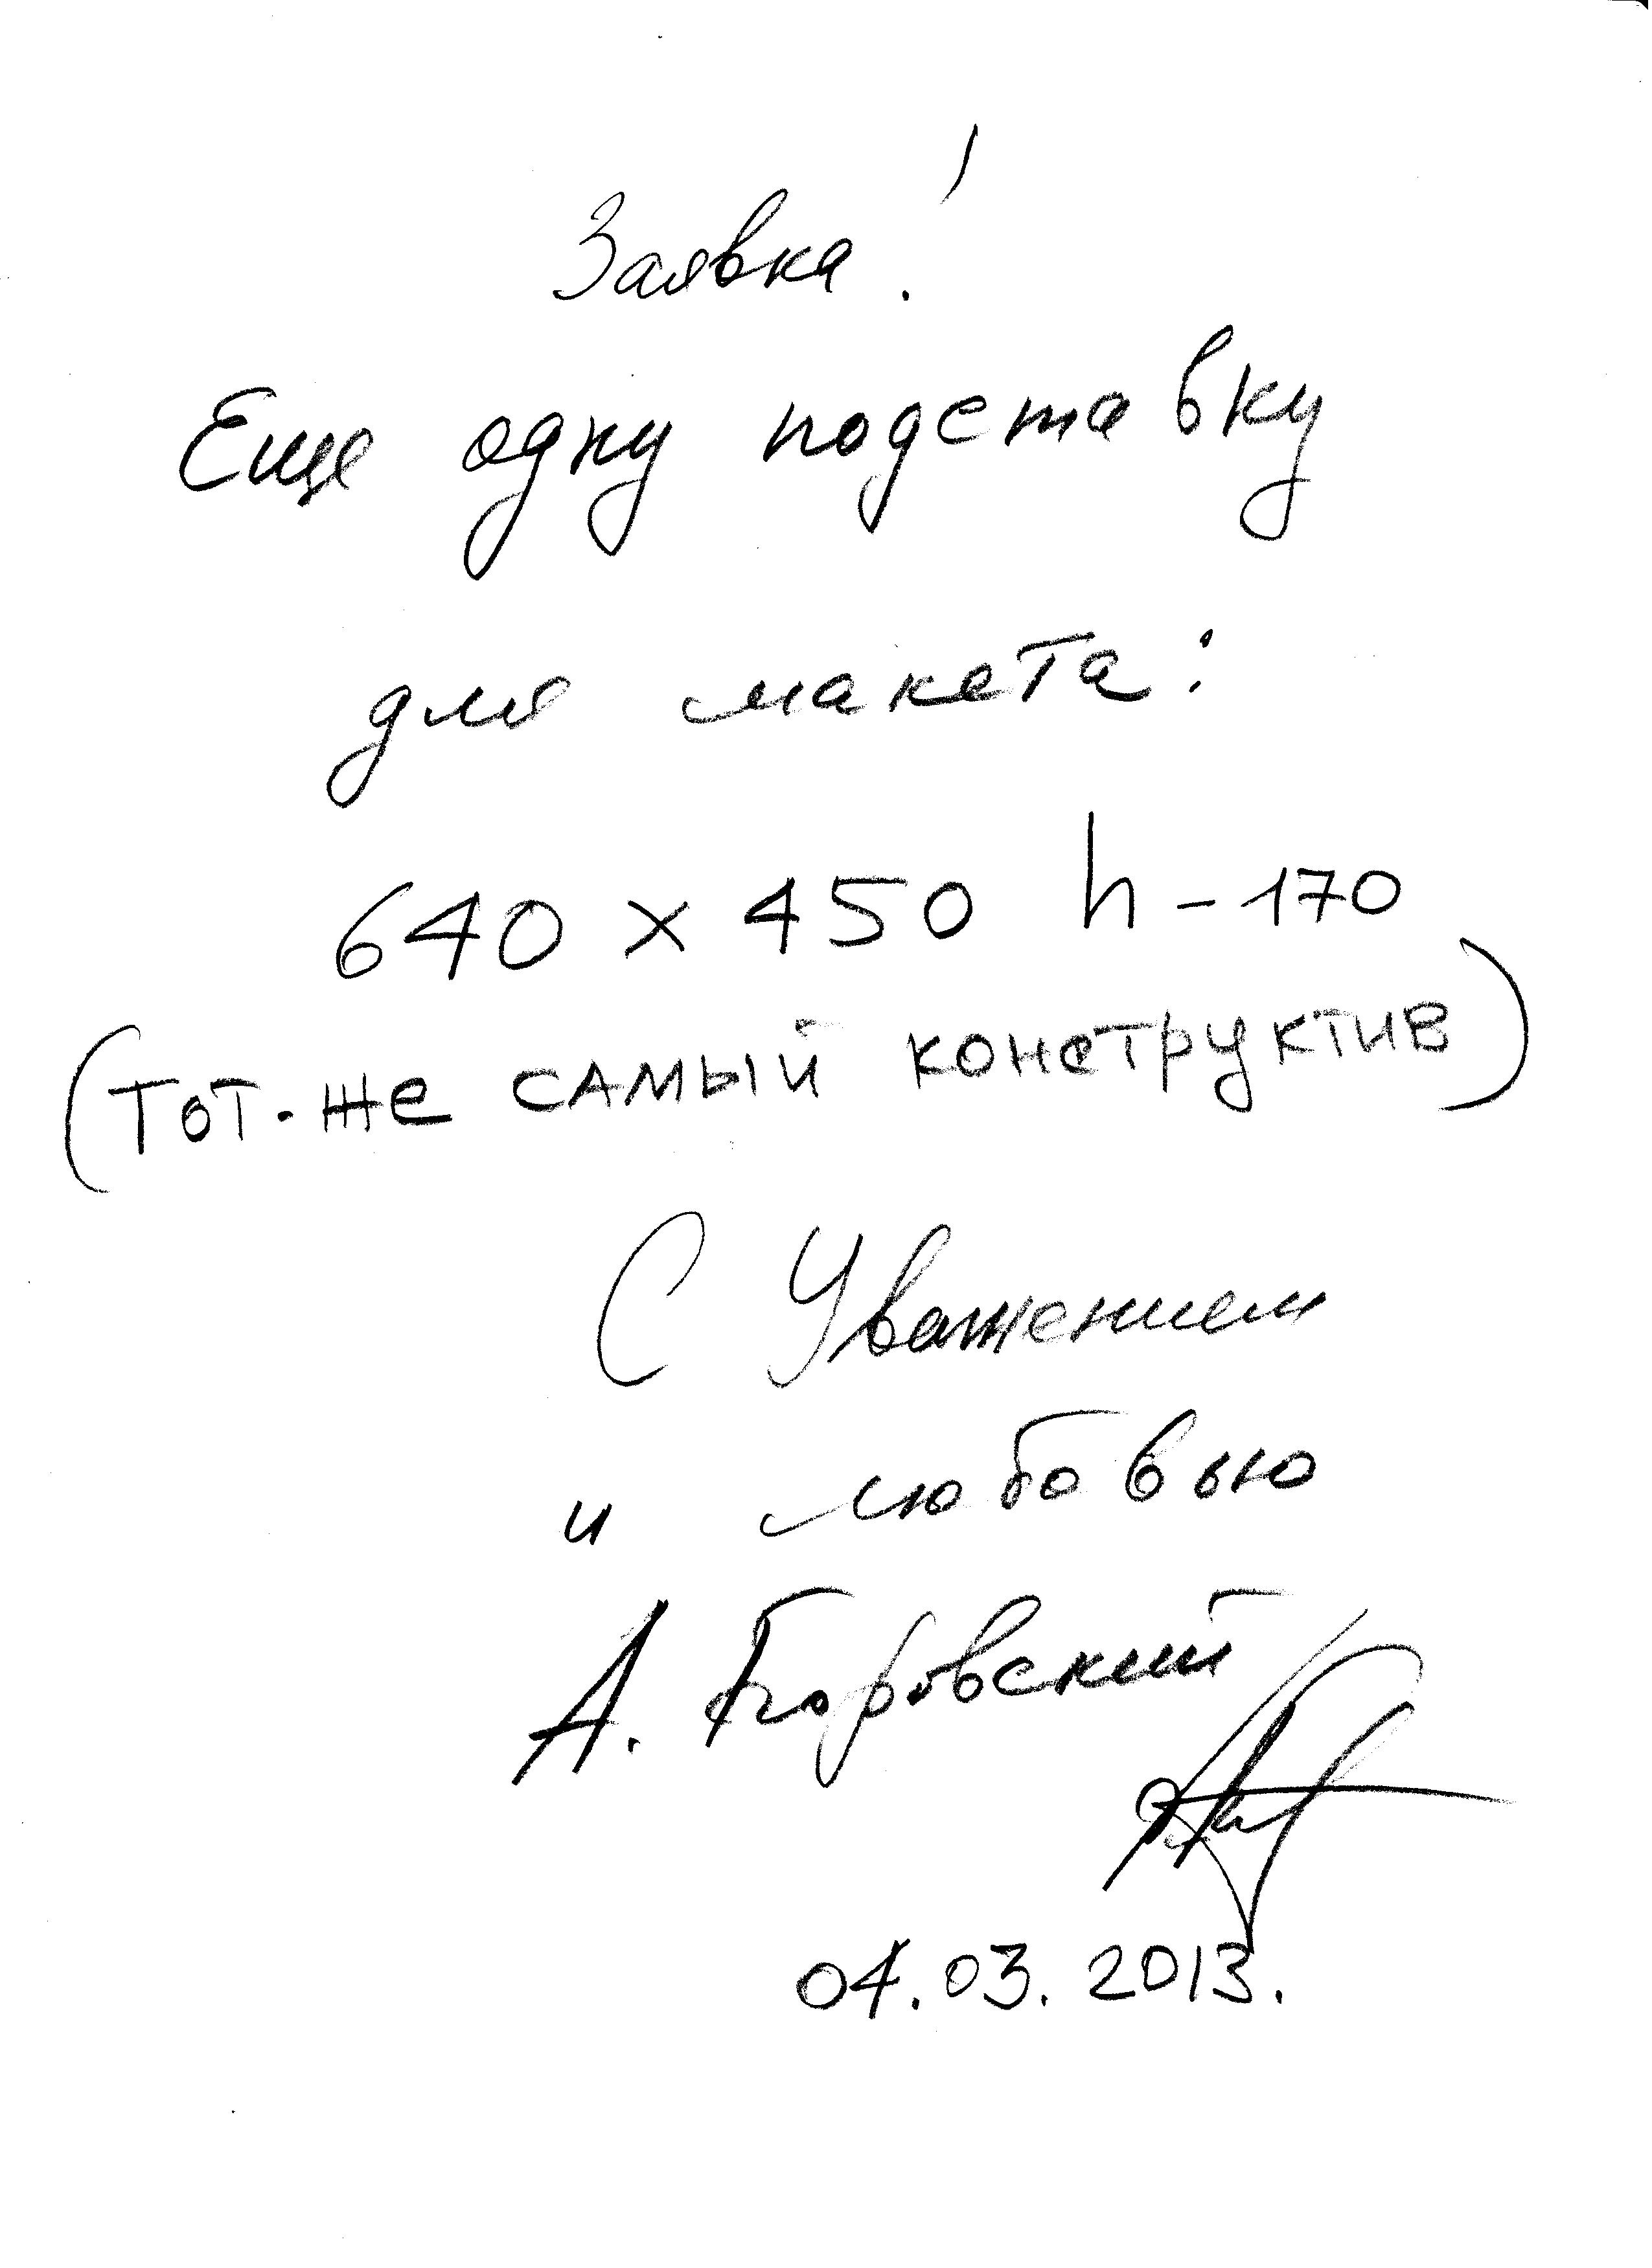 Заявка!
Еще одну подставку
для макета:
640 х 450 h - 170
(тот-же самый конструктив)
С Уважением
и любовью
А. Боровский
04.03.2013.